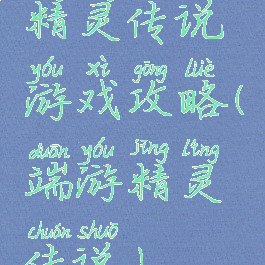 精灵传说
yóu xì gōng lüè
游戏攻略(
duān yóu jīng líng
端游精灵
chuán shuō
传说)